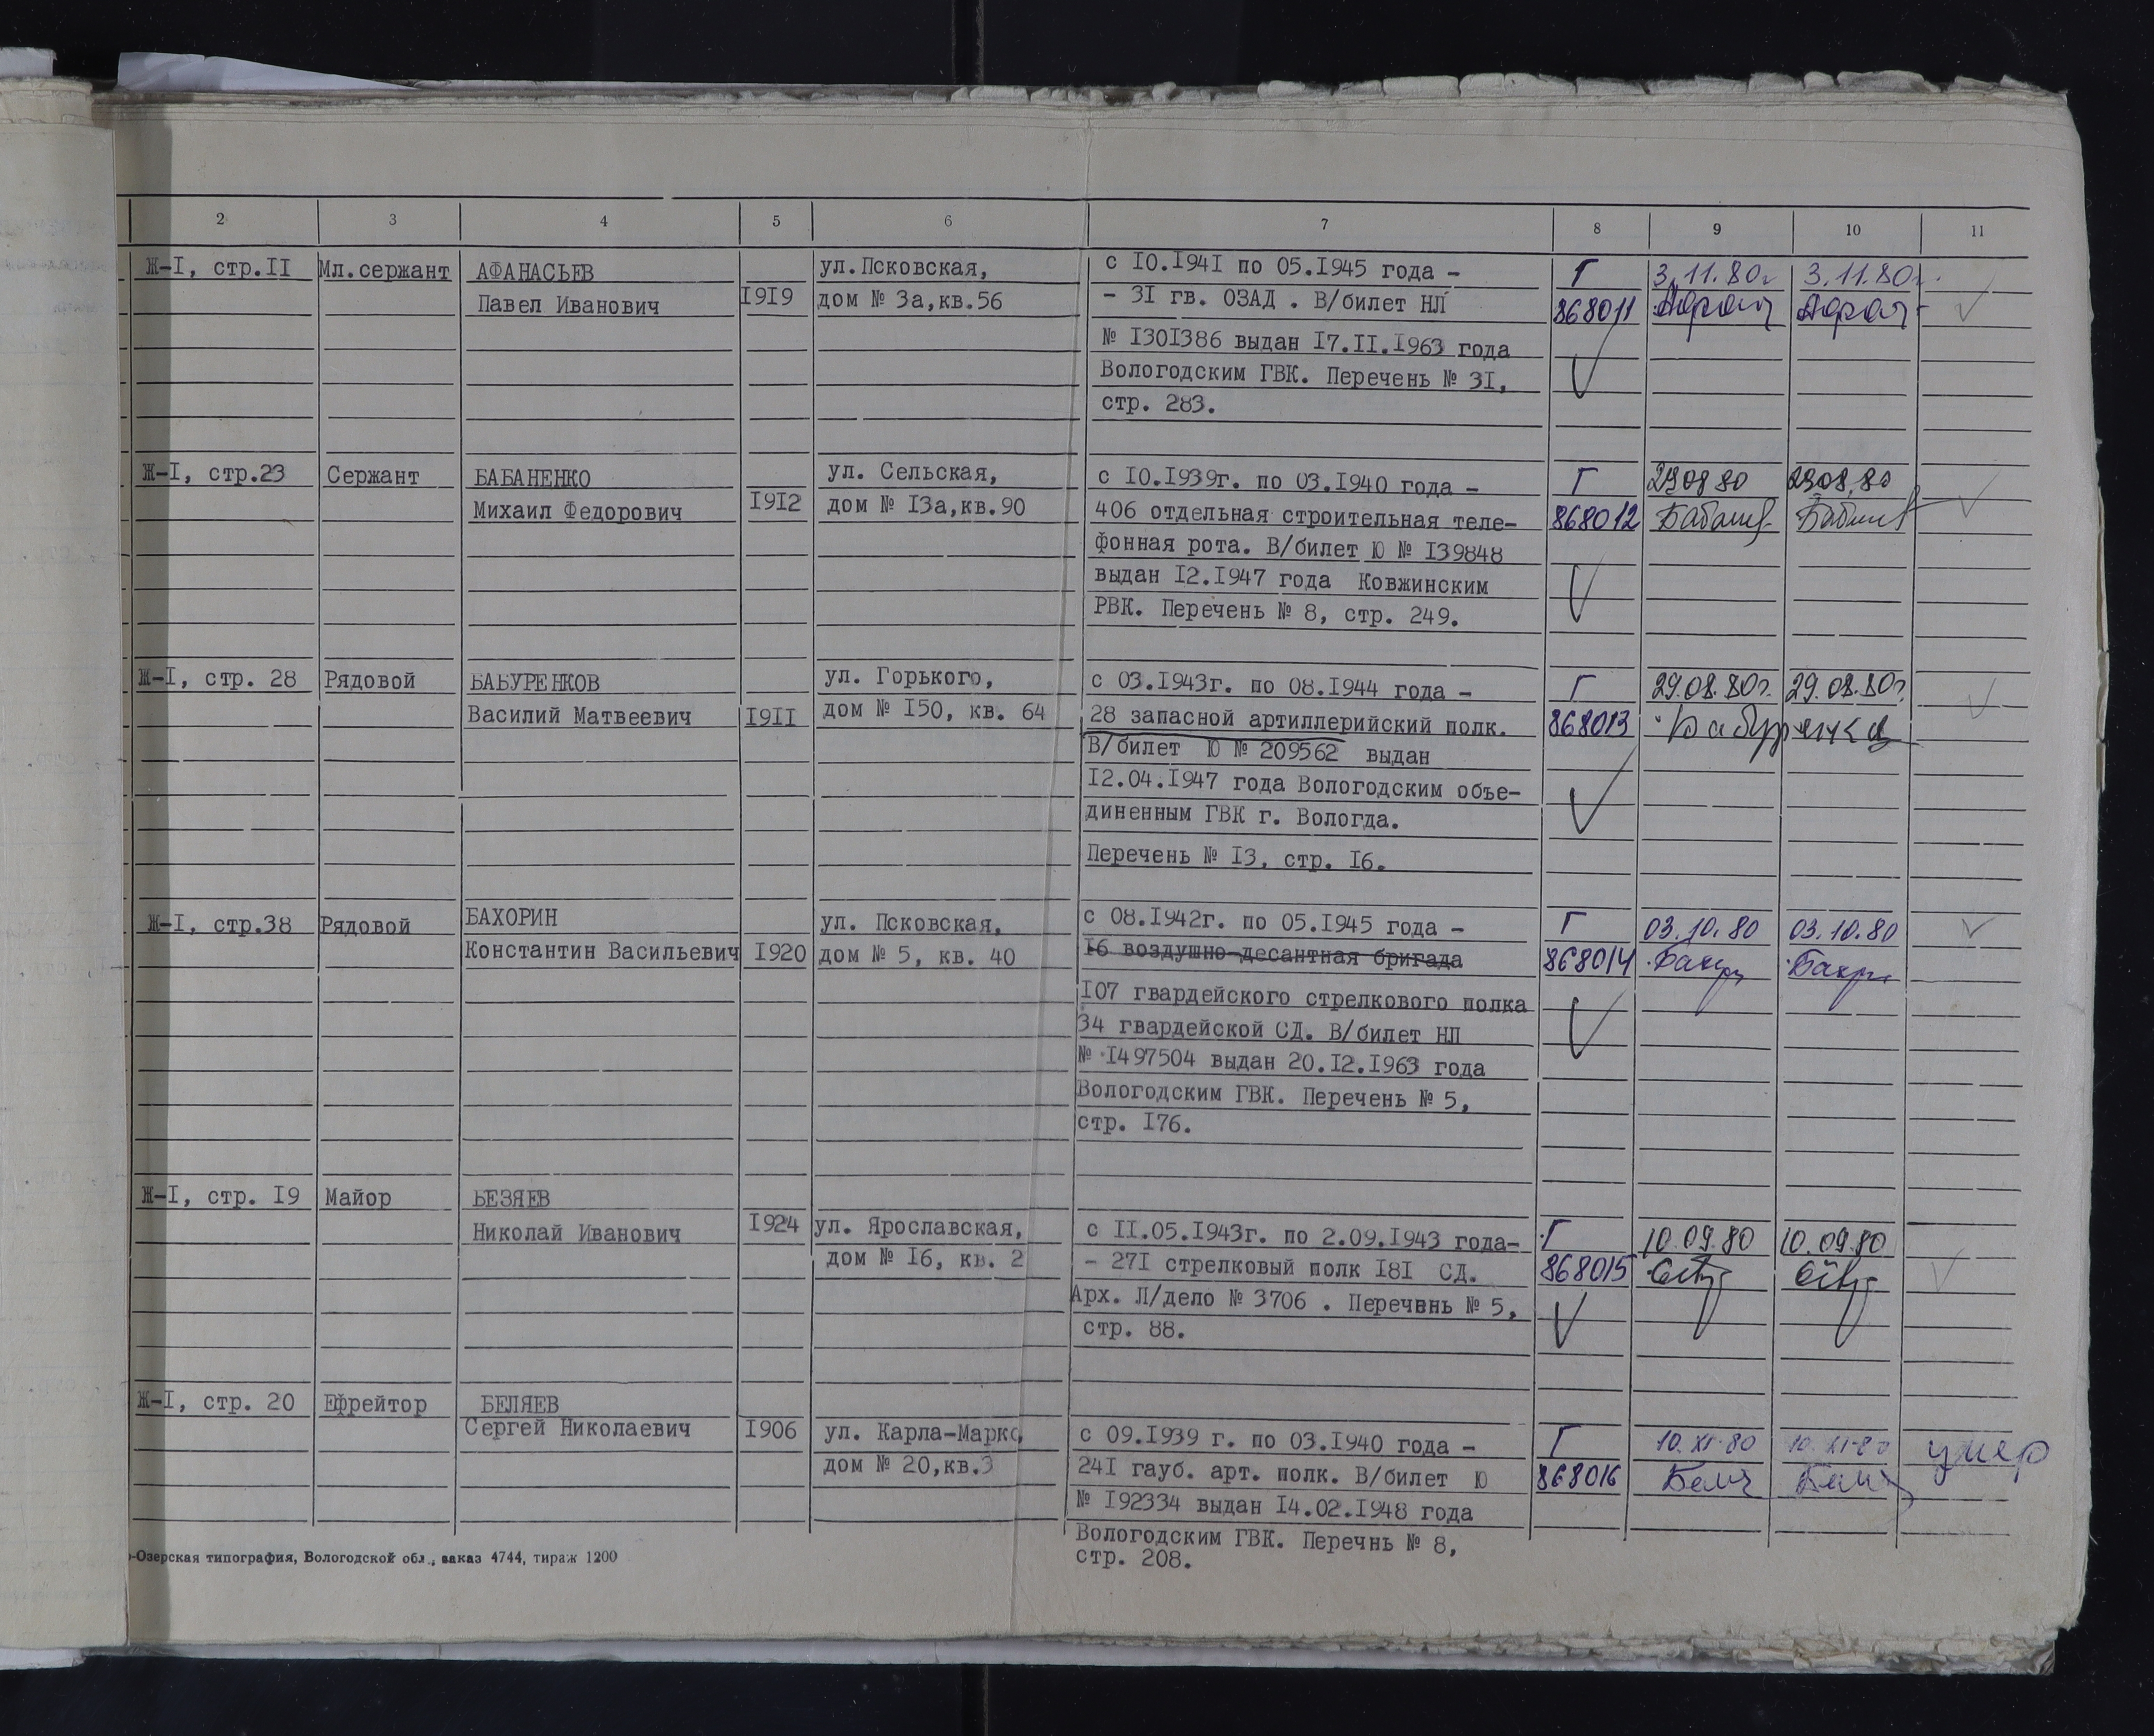 2 3 4 5 6 7 8 9 10 11
Ж-I, стр.II Мл.сержант АФАНАСЬЕВ ул.Псковская, с I0.I94I по 05.I945 года - Г 3.11.80г 3.11.80г.
Павел Иванович I9I9 дом № 3а,кв.56 - 3I гв. ОЗАД . В/билет НЛ 868011
№ I30I386 выдан I7.II.I963 года
Вологодским ГВК. Перечень № 3I,
стр. 283.
Ж-I, стр.23 Сержант БАБАНЕНКО ул. Сельская, с I0.I939г. по 03.I940 года - Г 290880 2908.80
Михаил Федорович I9I2 дом № I3а,кв.90 406 отдельная строительная теле- 868012
фонная рота. В/билет Ю № I39848
выдан I2.I947 года Ковжинским
РВК. Перечень № 8, стр. 249.
Ж-I, стр. 28 Рядовой БАБУРЕНКОВ ул. Горького, с 03.I943г. по 08.I944 года - Г 29.08.80г. 29.08.80г.
Василий Матвеевич I9II дом № I50, кв. 64 28 запасной артиллерийский полк. 868013
В/билет Ю № 209562 выдан
I2.04.I947 года Вологодским объе-
диненным ГВК г. Вологда.
Перечень № I3, стр. I6.
Ж-I, стр.38 Рядовой БАХОРИН ул. Псковская, с 08.I942г. по 05.I945 года - Г 03.10.80 03.10.80
Константин Васильевич I920 дом № 5, кв. 40 I6 воздушно-десантная бригада 868014
I07 гвардейского стрелкового полка
34 гвардейской СД. В/билет НЛ
№ I497504 выдан 20.I2.I963 года
Вологодским ГВК. Перечень № 5,
стр. I76.
Ж-I, стр. I9 Майор БЕЗЯЕВ
Николай Иванович I924 ул. Ярославская, с II.05.I943г. по 2.09.I943 года- Г 10.09.80 10.09.80
дом № I6, кв. 2 - 27I стрелковый полк I8I СД. 868015
Арх. Л/дело № 3706 . Перечвнь № 5,
стр. 88.
Ж-I, стр. 20 Ефрейтор БЕЛЯЕВ
Сергей Николаевич I906 ул. Карла-Маркс, с 09.I939 г. по 03.I940 года - Г 10.XI.80 10.XI.80 умер
дом № 20,кв.3 24I гауб. арт. полк. В/билет Ю 868016
№ I92334 выдан I4.02.I948 года
Вологодским ГВК. Перечнь № 8,
стр. 208.
-Озерская типография, Вологодской обл., заказ 4744, тираж 1200